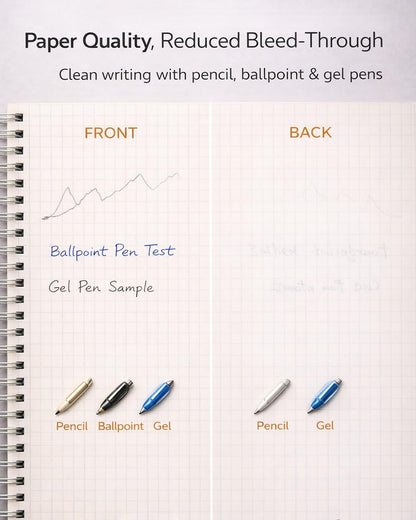 Paper Quality, Reduced Bleed-Through
Clean writing with pencil, ballpoint & gel pens
FRONT
BACK
Ballpoint Pen Test
Gel Pen Sample
Pencil Ballpoint Gel
Pencil Gel